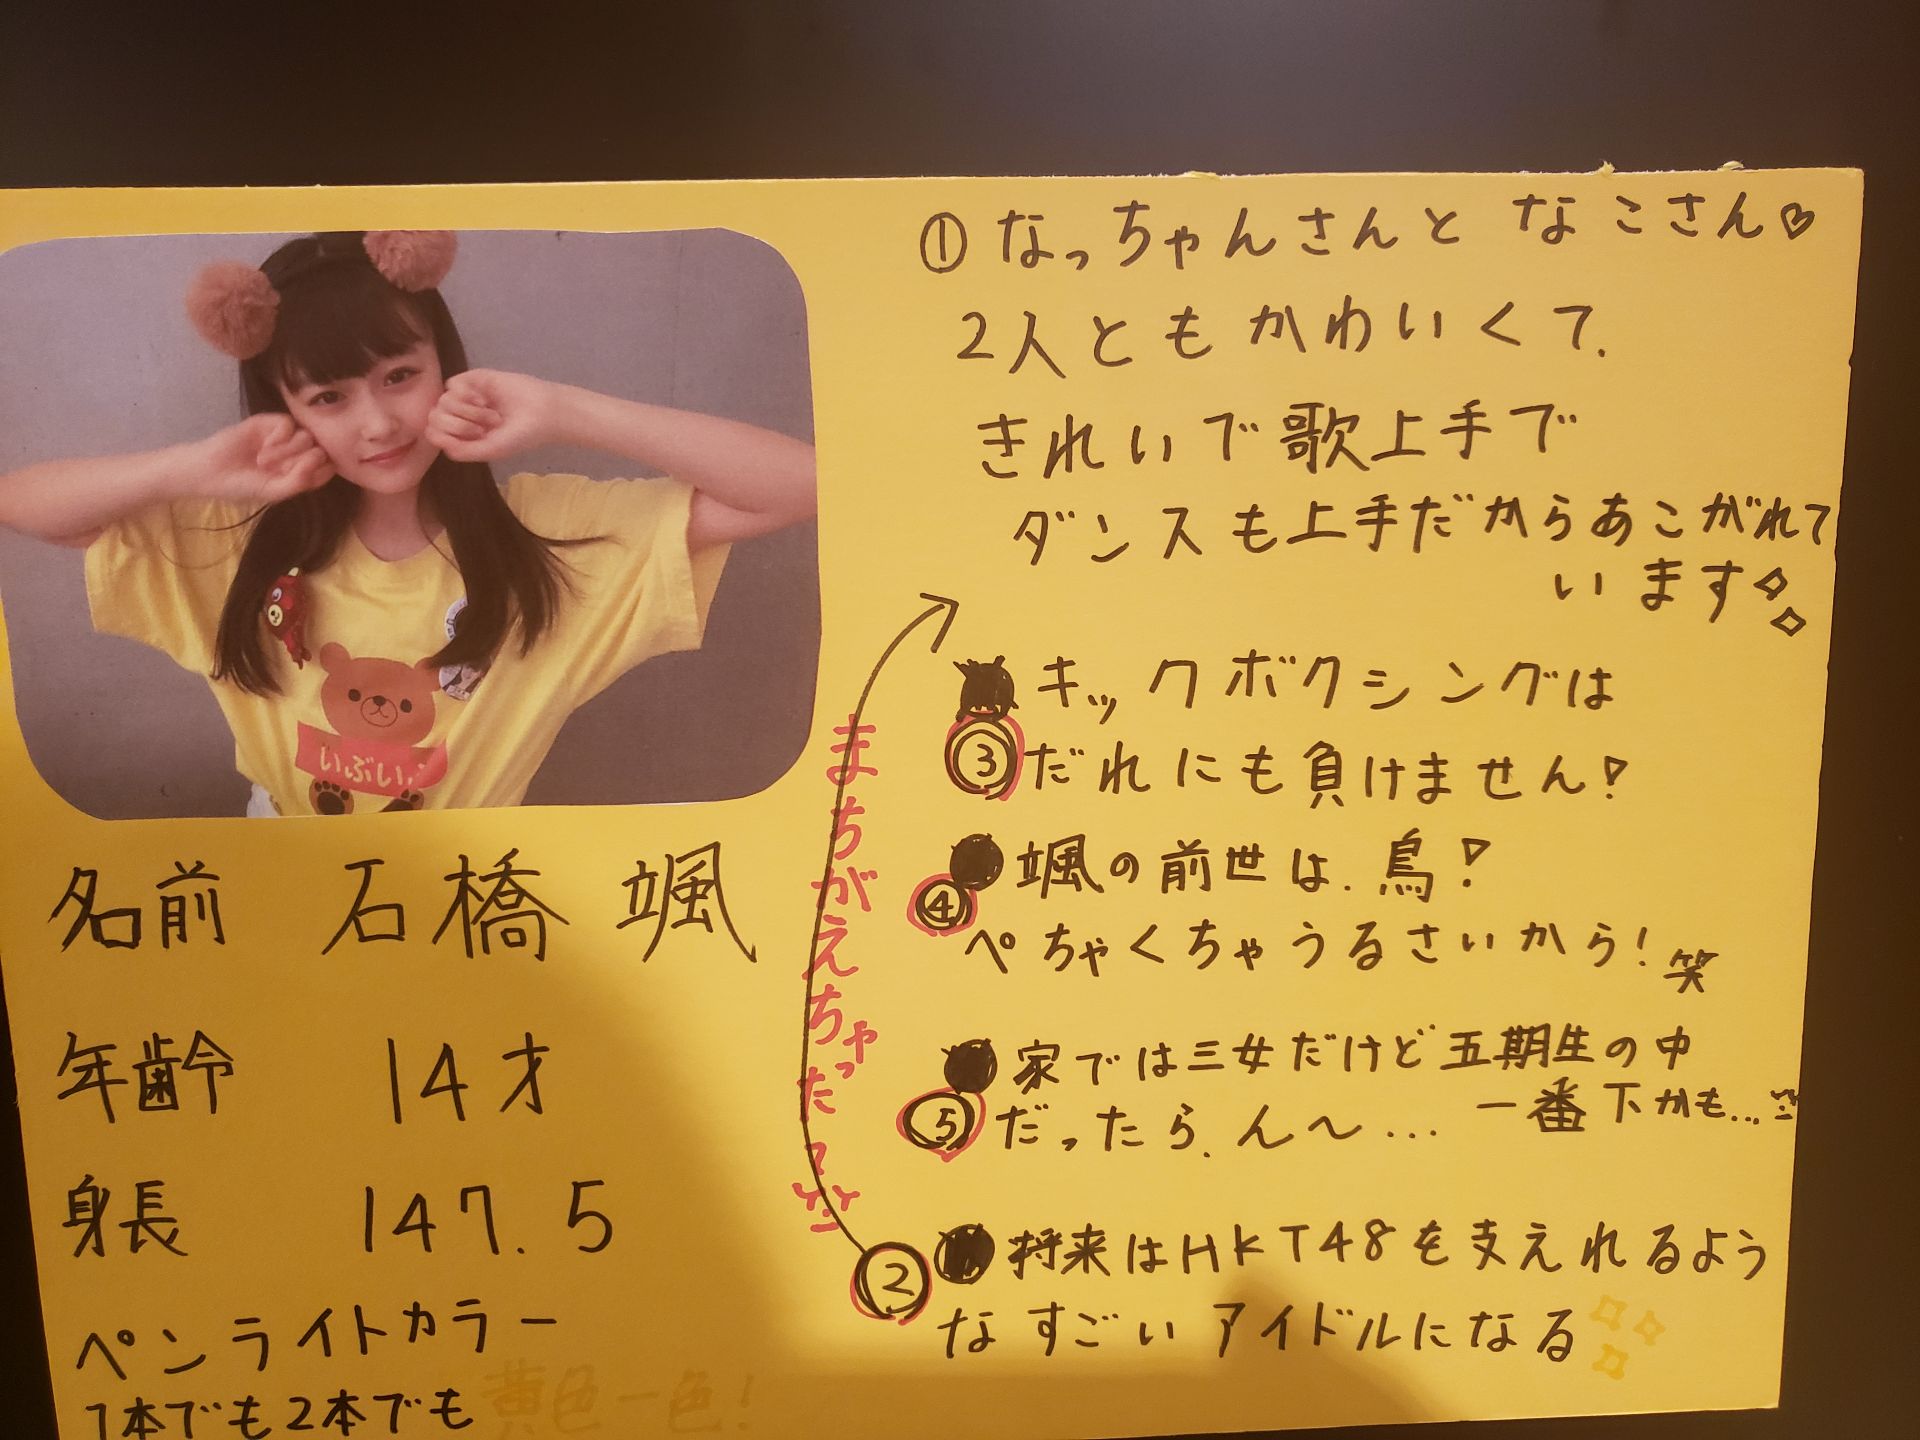 いぶいぶ
名前 石橋 颯
年齢 14才
身長 147.5
ペンライトカラー
1本でも2本でも 黄色一色!
① なっちゃんさんと なこさん♡
2人ともかわいくて.
きれいで歌上手で
ダンスも上手だからあこがれて
います
キックボクシングは
③ だれにも負けません!
颯の前世は.鳥!
④ ぺちゃくちゃうるさいから! 笑
家では三女だけど五期生の中
⑤ だったら.ん〜... 一番下かも...
② 将来はHKT48を支えれるよう
なすごいアイドルになる
まちがえちゃった